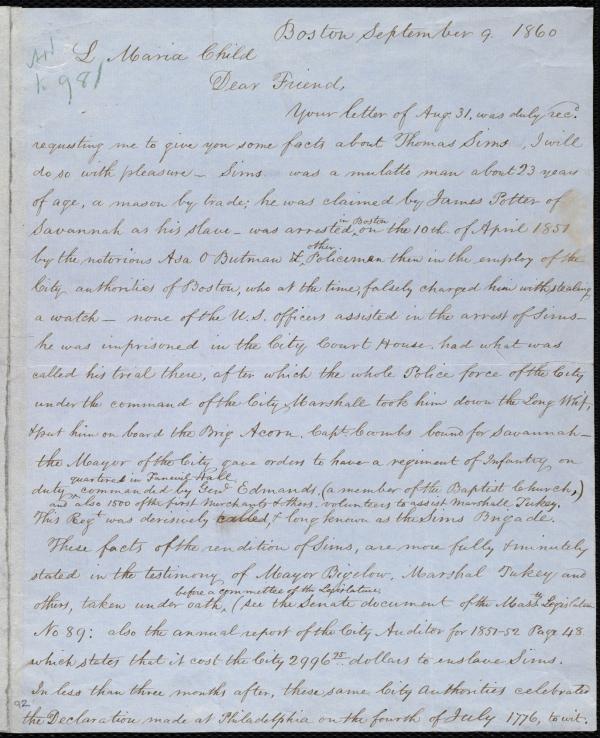 Boston September 9. 1860
L. Maria Child
Dear Friend,
Your letter of Aug. 31. was duly recd.
requesting me to give you some facts about Thomas Sims, I will
do so with pleasure – Sims was a mulatto man about 23 years
of age, a mason by trade; he was claimed by James Potter of
in Boston
Savannah as his slave – was arrested, on the 10th of April 1851
other
by the notorious Asa O Butman & Policeman then in the employ of the
City authorities of Boston, who at the time, falsely charged him with stealing
a watch – none of the U.S. officers assisted in the arrest of Sims –
he was imprisoned in the City Court House. had what was
called his trial there, after which the whole Police force of the City
under the command of the City Marshall took him down the Long Whf,
& put him on board the Brig Acorn. Capt. Coombs bound for Savannah –
the Mayor of the City gave orders to have a regiment of Infantry on
quartered in Faneuil Hall
duty commanded by Genl Edmands. (a member of the Baptist Church,)
and also 1500 of the first Merchants & others. volunteers to assist Marshall Tukey.
This Regt was derisively called, & long known as the Sims Brigade.
These facts of the rendition of Sims, are more fully & minutely
stated in the testimony of Mayor Bigelow, Marshal Tukey and
before a committee of the Legislature
others, taken under oath, (see the Senate document of the Mass Legislature
No 89: also the annual report of the City Auditor for 1851-52 Page 48
which states that it cost the City 2996 75 dollars to enslave Sims.
In less than three months after, these same City Authorities celebrated
92
the Declaration made at Philadelphia on the fourth of July 1776, to wit.